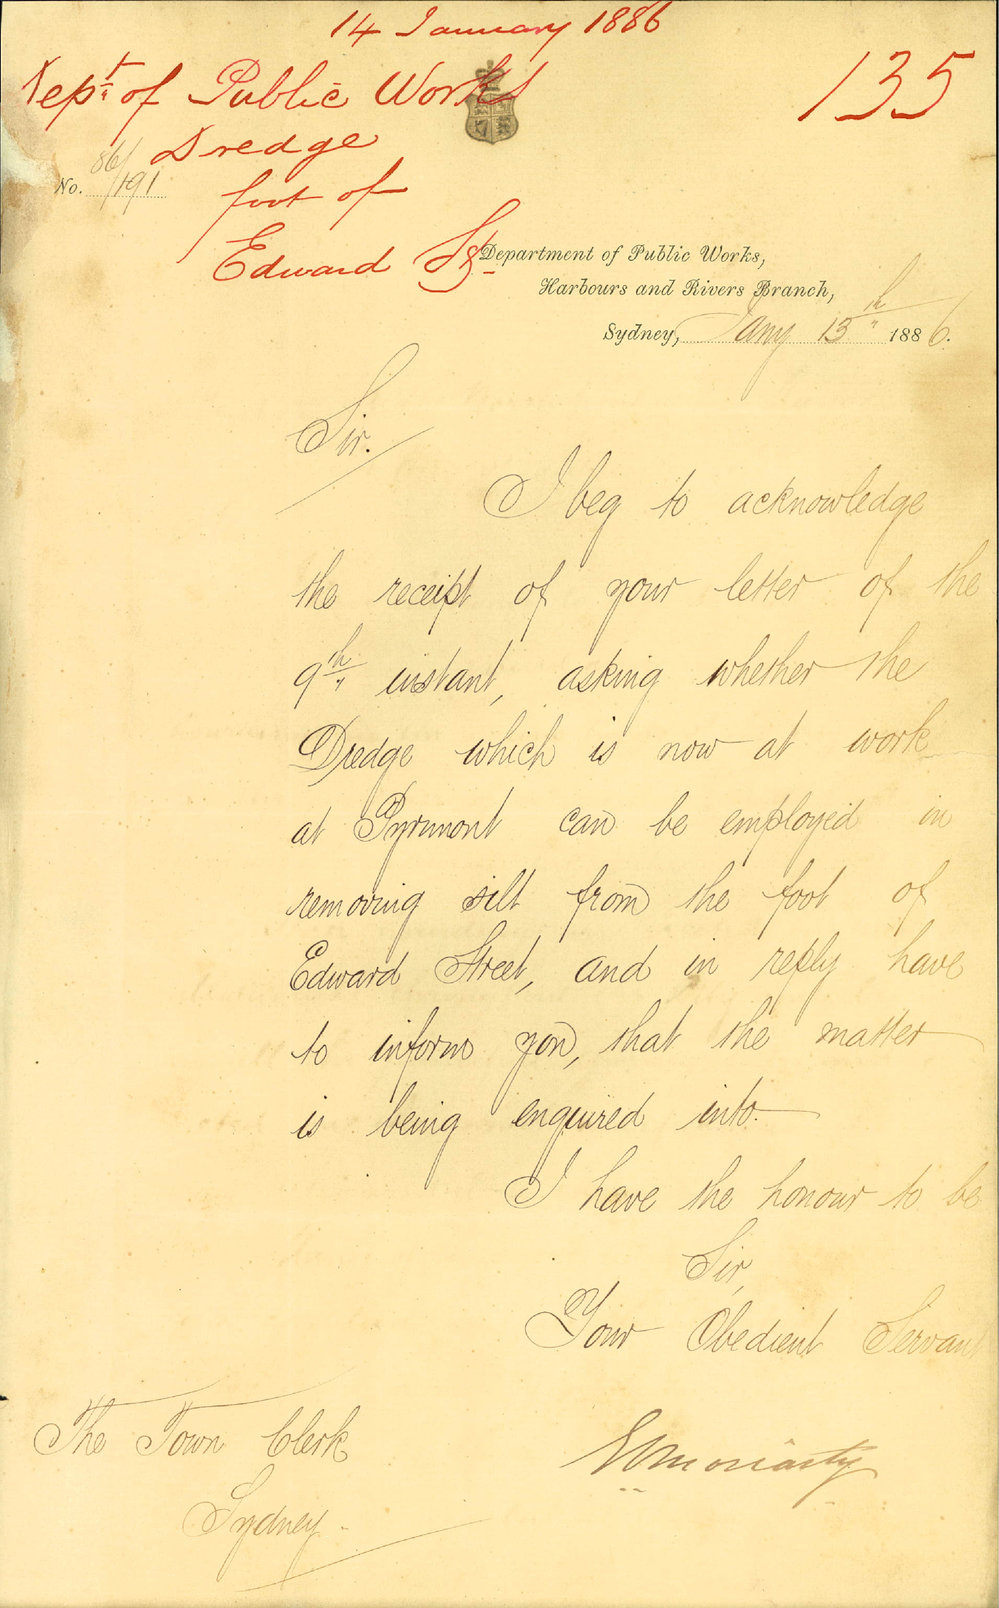 14 January 1886
Dept of Public Works
135
Dredge
No. 86/191
foot of
Edward St
Department of Public Works,
Harbours and Rivers Branch,
Sydney, Jany 13th 1886.
Sir.
I beg to acknowledge
the receipt of your letter of the
9th instant, asking whether the
Dredge which is now at work
at Pyrmont can be employed in
removing silt from the foot of
Edward Street, and in reply have
to inform you, that the matter
is being enquired into.
I have the honour to be
Sir,
Your Obedient Servant
E O Moriarty
The Town Clerk
Sydney.